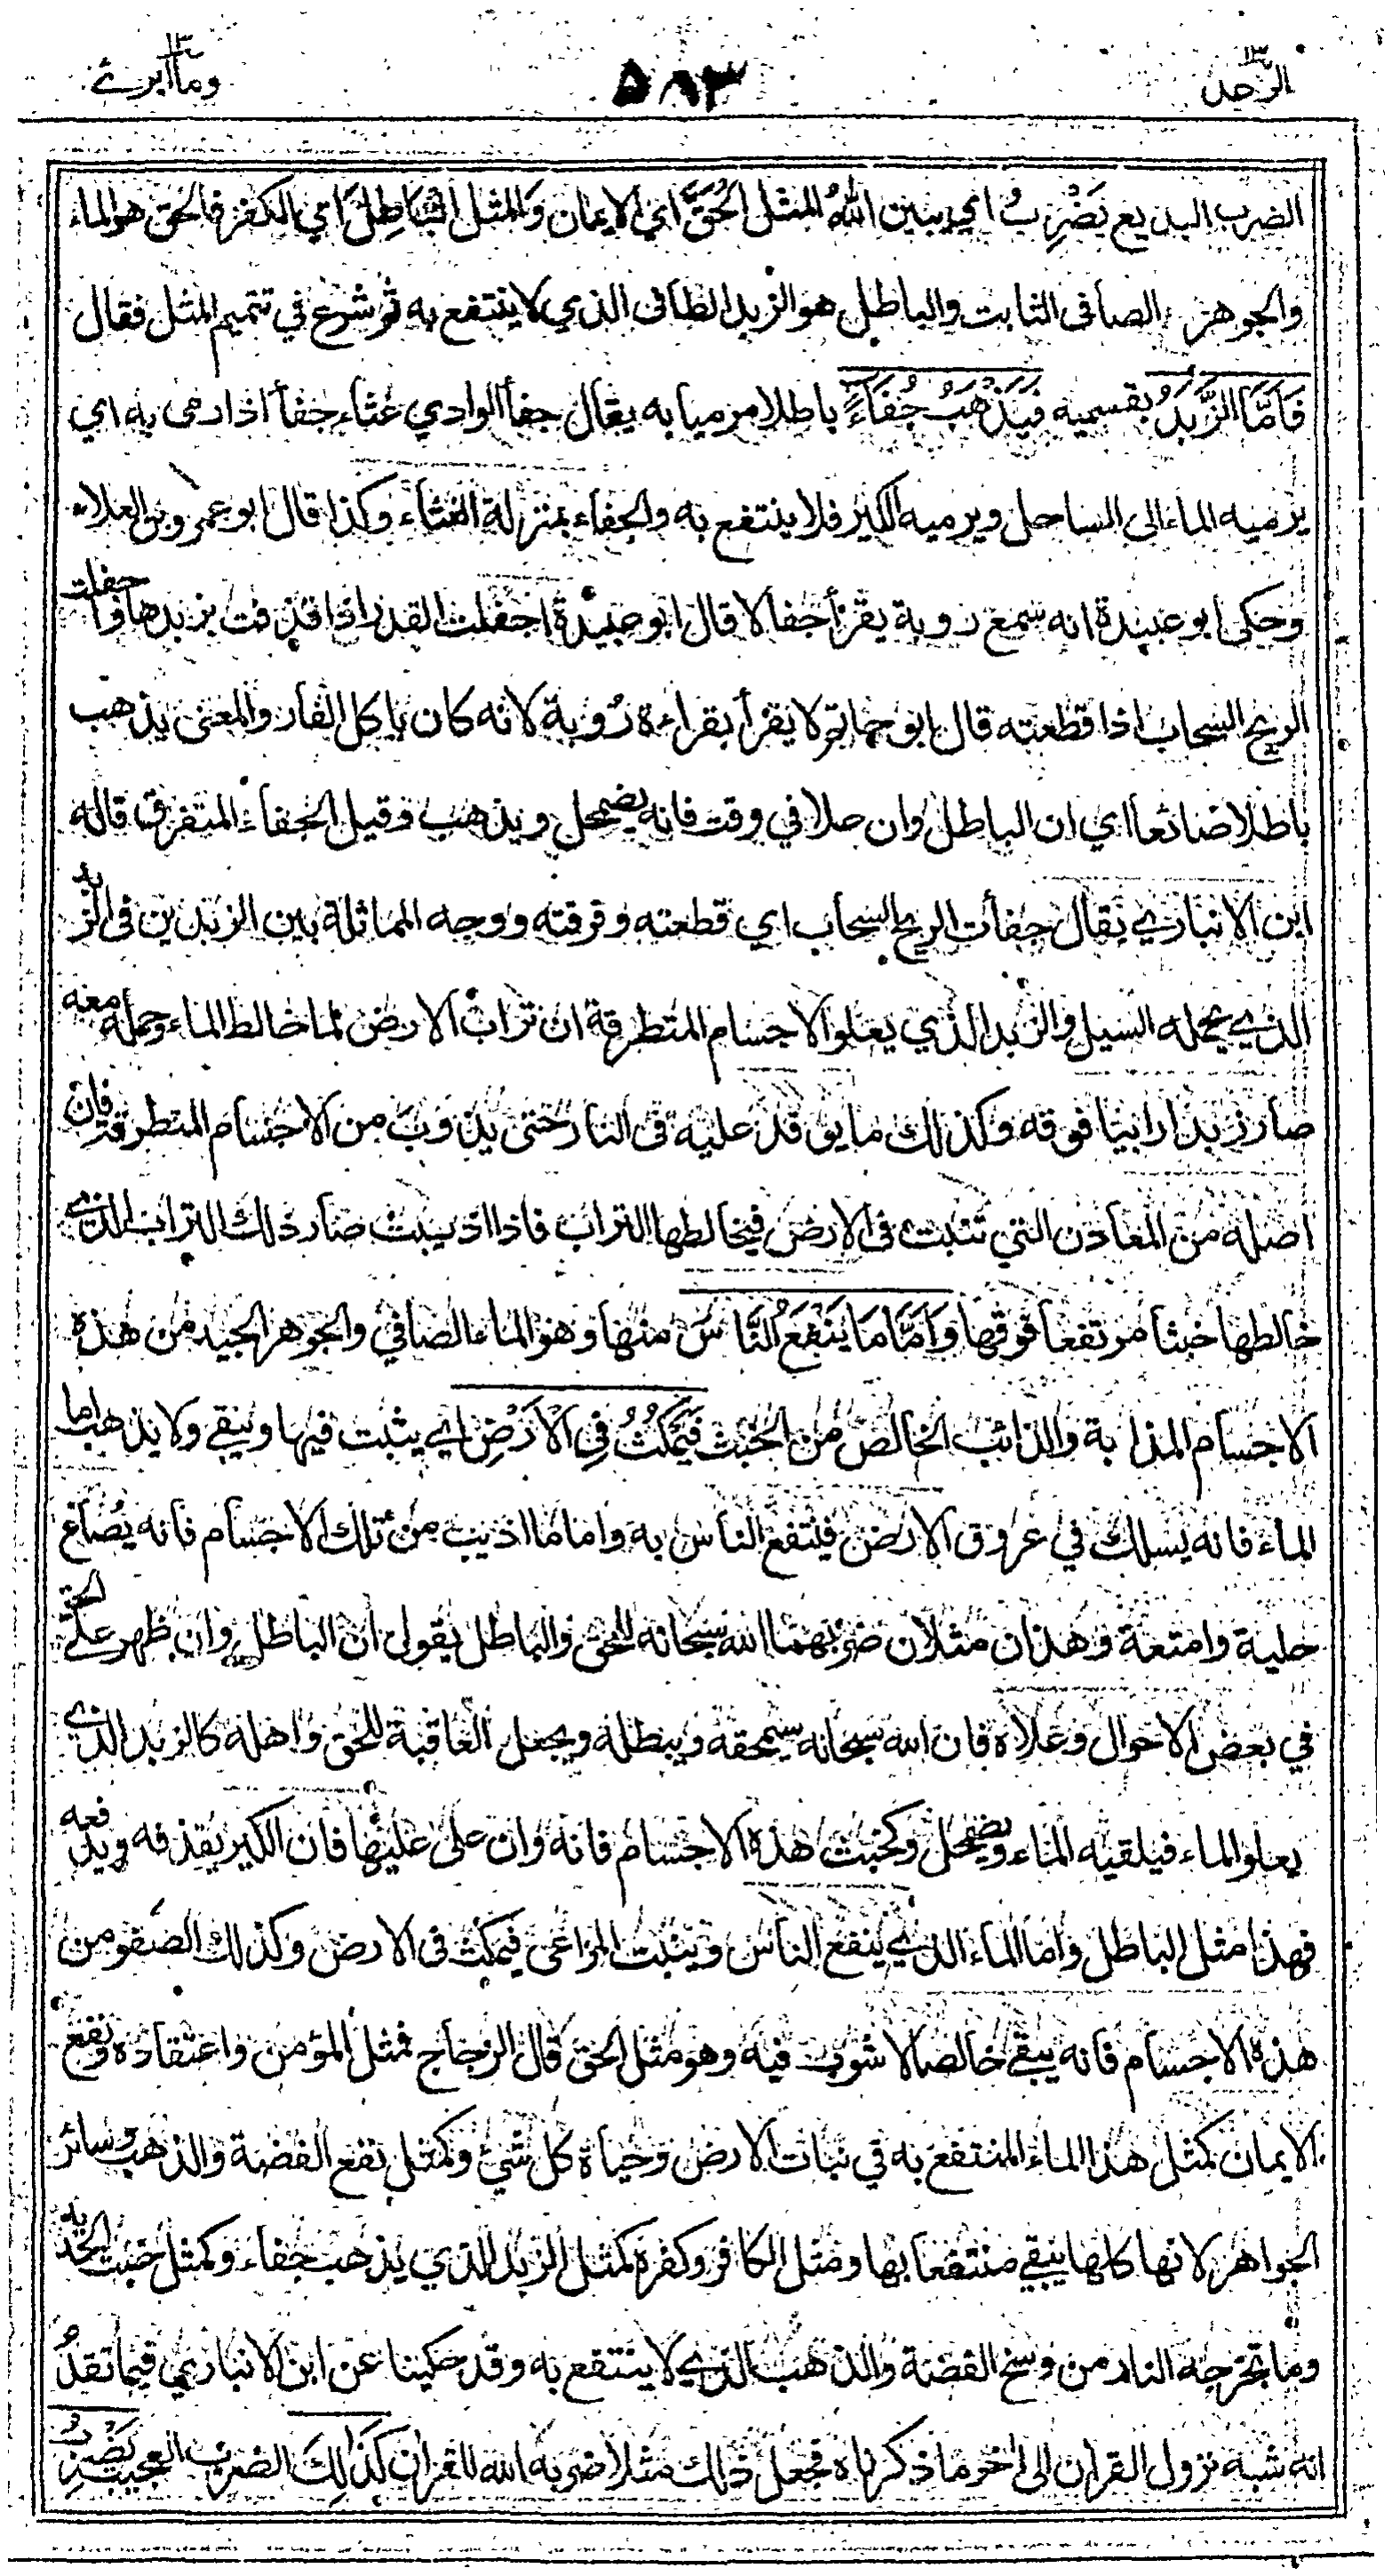 الرعد ١٣
٥٨٣
وما أبرئ ١٣
الضرب البديع يَضْرِبُ اي يبين اللهُ المثل الحَقَّ اي الايمان والمثل البَاطِلَ اي الكفر فالحق هو الماء
والجوهر الصافى الثابت والباطل هو الزبد الطافى الذي لا ينتفع به ثم شرع في تتميم المثل فقال
فَاَمَّا الزَّبَدُ بقسميه فَيَذْهَبُ جُفَاءً باطلا مرميا به يقال جفأ الوادي غثاء جفأ اذا رمى به اي
يرميه الماء الى الساحل ويرميه الكير فلا ينتفع به والجفاء بمنزلة الغثاء وكذا قال ابو عمرو بن العلاء
وحكى ابو عبيدة انه سمع روبة يقرأ جفالا قال ابو عبيدة اجفلت القدر اذا قذفت بزبدها واجفلت
الريح السحاب اذا قطعته قال ابو حاتم لا يقرأ بقراءة رُوبة لانه كان ياكل الفار والمعنى يذهب
باطلا ضائعا اي ان الباطل وان علا في وقت فانه يضمحل ويذهب وقيل الجفاء المتفرق قاله
ابن الانباري يقال جفأت الريح السحاب اي قطعته وفرقته ووجه المماثلة بين الزبدين فى الزبد
الذي يحمله السيل والزبد الذي يعلو الاجسام المتطرقة ان تراب الارض لما خالط الماء وحمله معه
صار زبدا رابيا فوقه وكذلك ما يوقد عليه فى النار حتى يذوب من الاجسام المتطرقة فان
اصله من المعادن التي تنبت فى الارض فيخالطها التراب فاذا اذيبت صار ذلك التراب الذي
خالطها خبثا مرتفعا فوقها وَاَمَّا مَا يَنْفَعُ النَّاسَ منها وهو الماء الصافي والجوهر الجيد من هذه
الاجسام المذابة والذائب الخالص من الخبث فَيَمْكُثُ فِي الْاَرْضِ اي يثبت فيها ويبقى ولا يذهب اما
الماء فانه يسلك في عروق الارض فينتفع الناس به واما ما اذيب من تلك الاجسام فانه يصاغ
حلية وامتعة وهذان مثلان ضربهما الله سبحانه للحق والباطل يقول ان الباطل وان ظهر على الحق
في بعض الاحوال وعلاه فان الله سبحانه سيمحقه ويبطله ويجعل العاقبة للحق واهله كالزبد الذي
يعلو الماء فيلقيه الماء ويضمحل وكخبث هذه الاجسام فانه وان على عليها فان الكير يقذفه ويدفعه
فهذا مثل الباطل واما الماء الذي ينفع الناس وينبت المراعى فيمكث فى الارض وكذلك الصفو من
هذه الاجسام فانه يبقى خالصا لا شوب فيه وهو مثل الحق قال الزجاج فمثل المؤمن واعتقاده ونفع
الايمان كمثل هذا الماء المنتفع به في نبات الارض وحياة كل شيء وكمثل نفع الفضة والذهب وسائر
الجواهر لانها كلها يبقى منتفعا بها ومثل الكافر وكفره كمثل الزبد الذي يذهب جفاء وكمثل خبث الحديد
وما تخرجه النار من وسخ الفضة والذهب الذي لا ينتفع به وقد حكينا عن ابن الانباري فيما تقدم
انه شبه نزول القرآن الى اخر ما ذكرناه فجعل ذلك مثلا ضربه الله للقران كَذٰلِكَ الضرب العجيب يَضْرِبُ